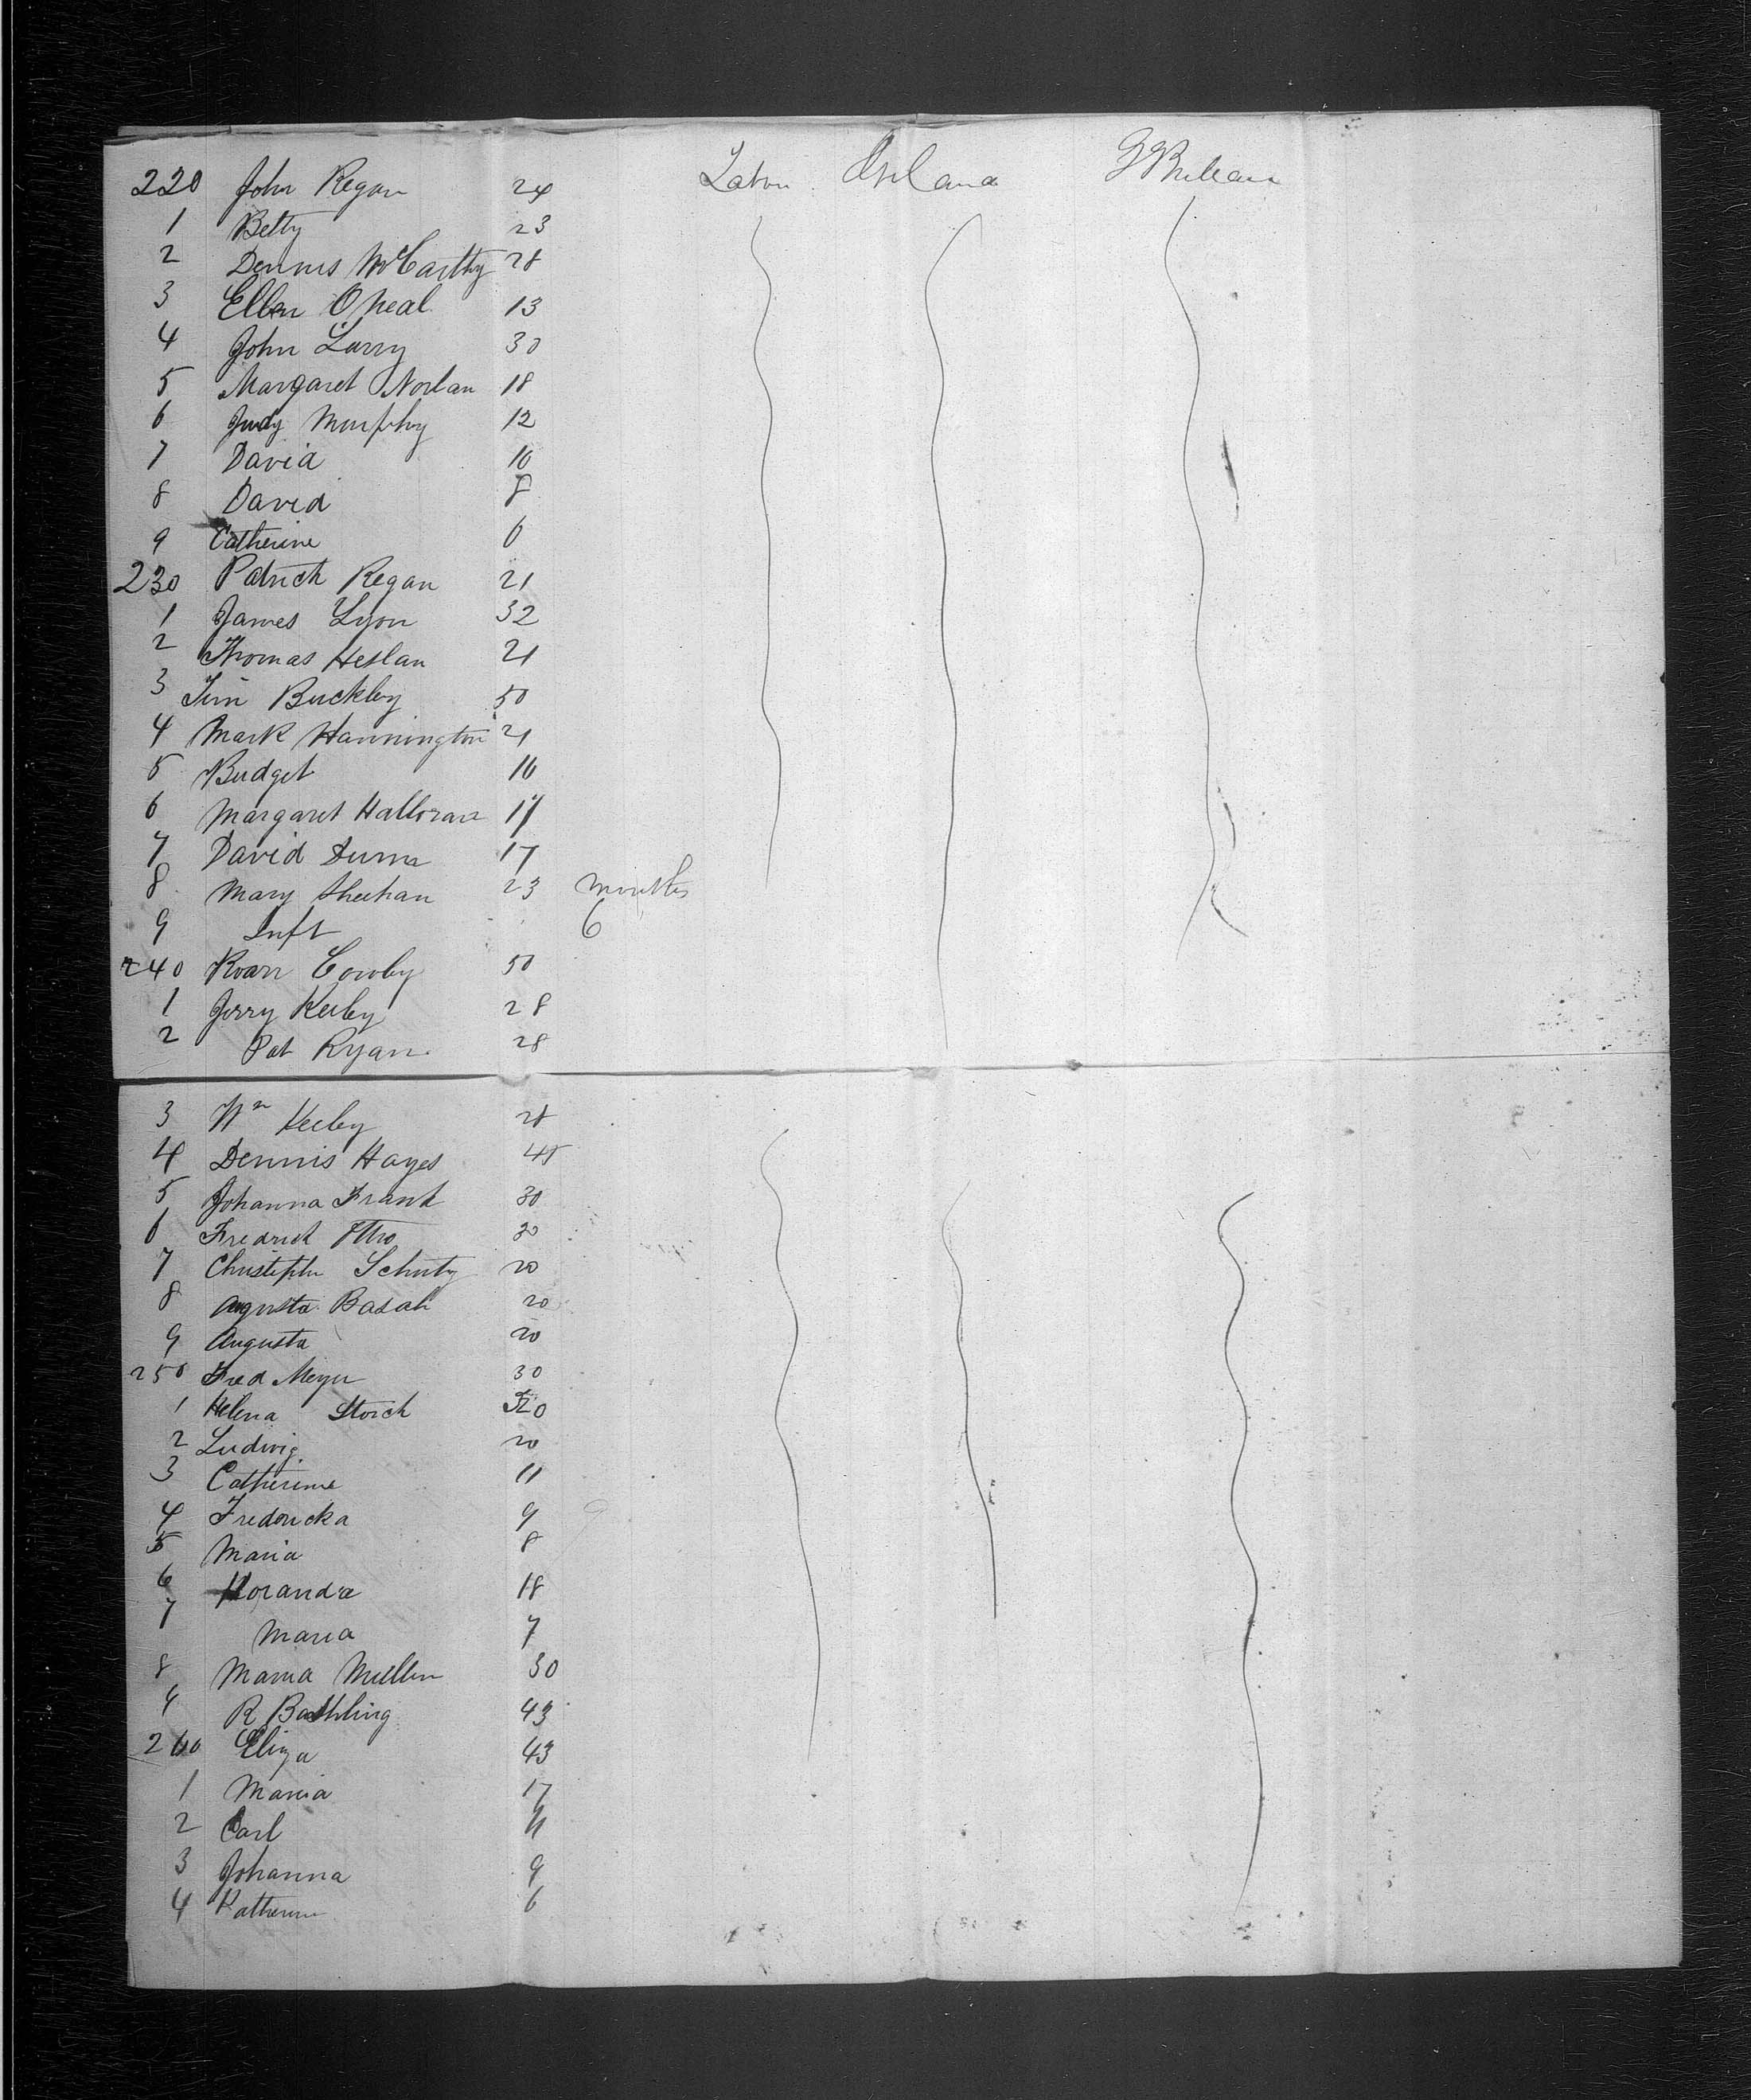 220 John Regan 24 Labor Ireland
1 Betty 23
2 Dennis McCarthy 28
3 Ellen O Neal 13
4 John Larry 30
5 Margaret Norlan 18
6 Judy Murphy 12
7 David 10
8 David 8
9 Catherine 6
230 Patrick Regan 21
1 James Lyon 32
2 Thomas Heslan 21
3 Jim Buckley 50
4 Mark Hannington 21
5 Bridget 16
6 Margaret Halloran 17
7 David Dunn 17
8 Mary Sheehan 23 months
9 Inft 6
240 Roan Cowley 50
1 Jerry Keeley 28
2 Pat Ryan 28
3 Wm Keeley 28
4 Dennis Hayes 45
5 Johanna Frank 30
6 Fredrick Otto 30
7 Christopher Schutz 20
8 Augusta 20
9 Augusta 20
250 Fred Meyer 30
1 Helena Storck
2 Ludwig 20
3 Catherine 11
4 Fredericka 9
5 Maria 8
6 18
7 Maria 7
8 Maria Muller 30
9 R 43
260 Eliza 43
1 Maria 17
2 Carl 11
3 Johanna 9
4 Katherine 6